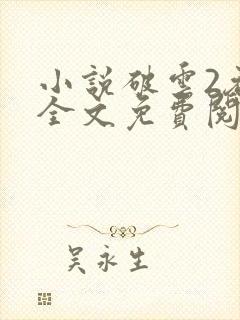 小說破雲2
全文免費閱
吳永生